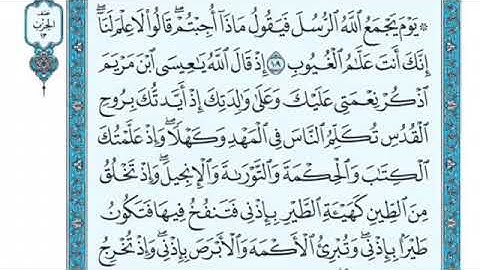 ۞ يَوْمَ يَجْمَعُ ٱللَّهُ ٱلرُّسُلَ فَيَقُولُ مَاذَآ أُجِبْتُمْۖ قَالُوا۟ لَا عِلْمَ لَنَآۖ
إِنَّكَ أَنتَ عَلَّـٰمُ ٱلْغُيُوبِ ١٠٩ إِذْ قَالَ ٱللَّهُ يَـٰعِيسَى ٱبْنَ مَرْيَمَ
ٱذْكُرْ نِعْمَتِى عَلَيْكَ وَعَلَىٰ وَٰلِدَتِكَ إِذْ أَيَّدتُّكَ بِرُوحِ
ٱلْقُدُسِ تُكَلِّمُ ٱلنَّاسَ فِى ٱلْمَهْدِ وَكَهْلًاۖ وَإِذْ عَلَّمْتُكَ
ٱلْكِتَـٰبَ وَٱلْحِكْمَةَ وَٱلتَّوْرَىٰةَ وَٱلْإِنجِيلَۖ وَإِذْ تَخْلُقُ
مِنَ ٱلطِّينِ كَهَيْـَٔةِ ٱلطَّيْرِ بِإِذْنِى فَتَنفُخُ فِيهَا فَتَكُونُ
طَيْرًۢا بِإِذْنِىۖ وَتُبْرِئُ ٱلْأَكْمَهَ وَٱلْأَبْرَصَ بِإِذْنِىۖ وَإِذْ تُخْرِجُ
نصف
الحزب
١٣